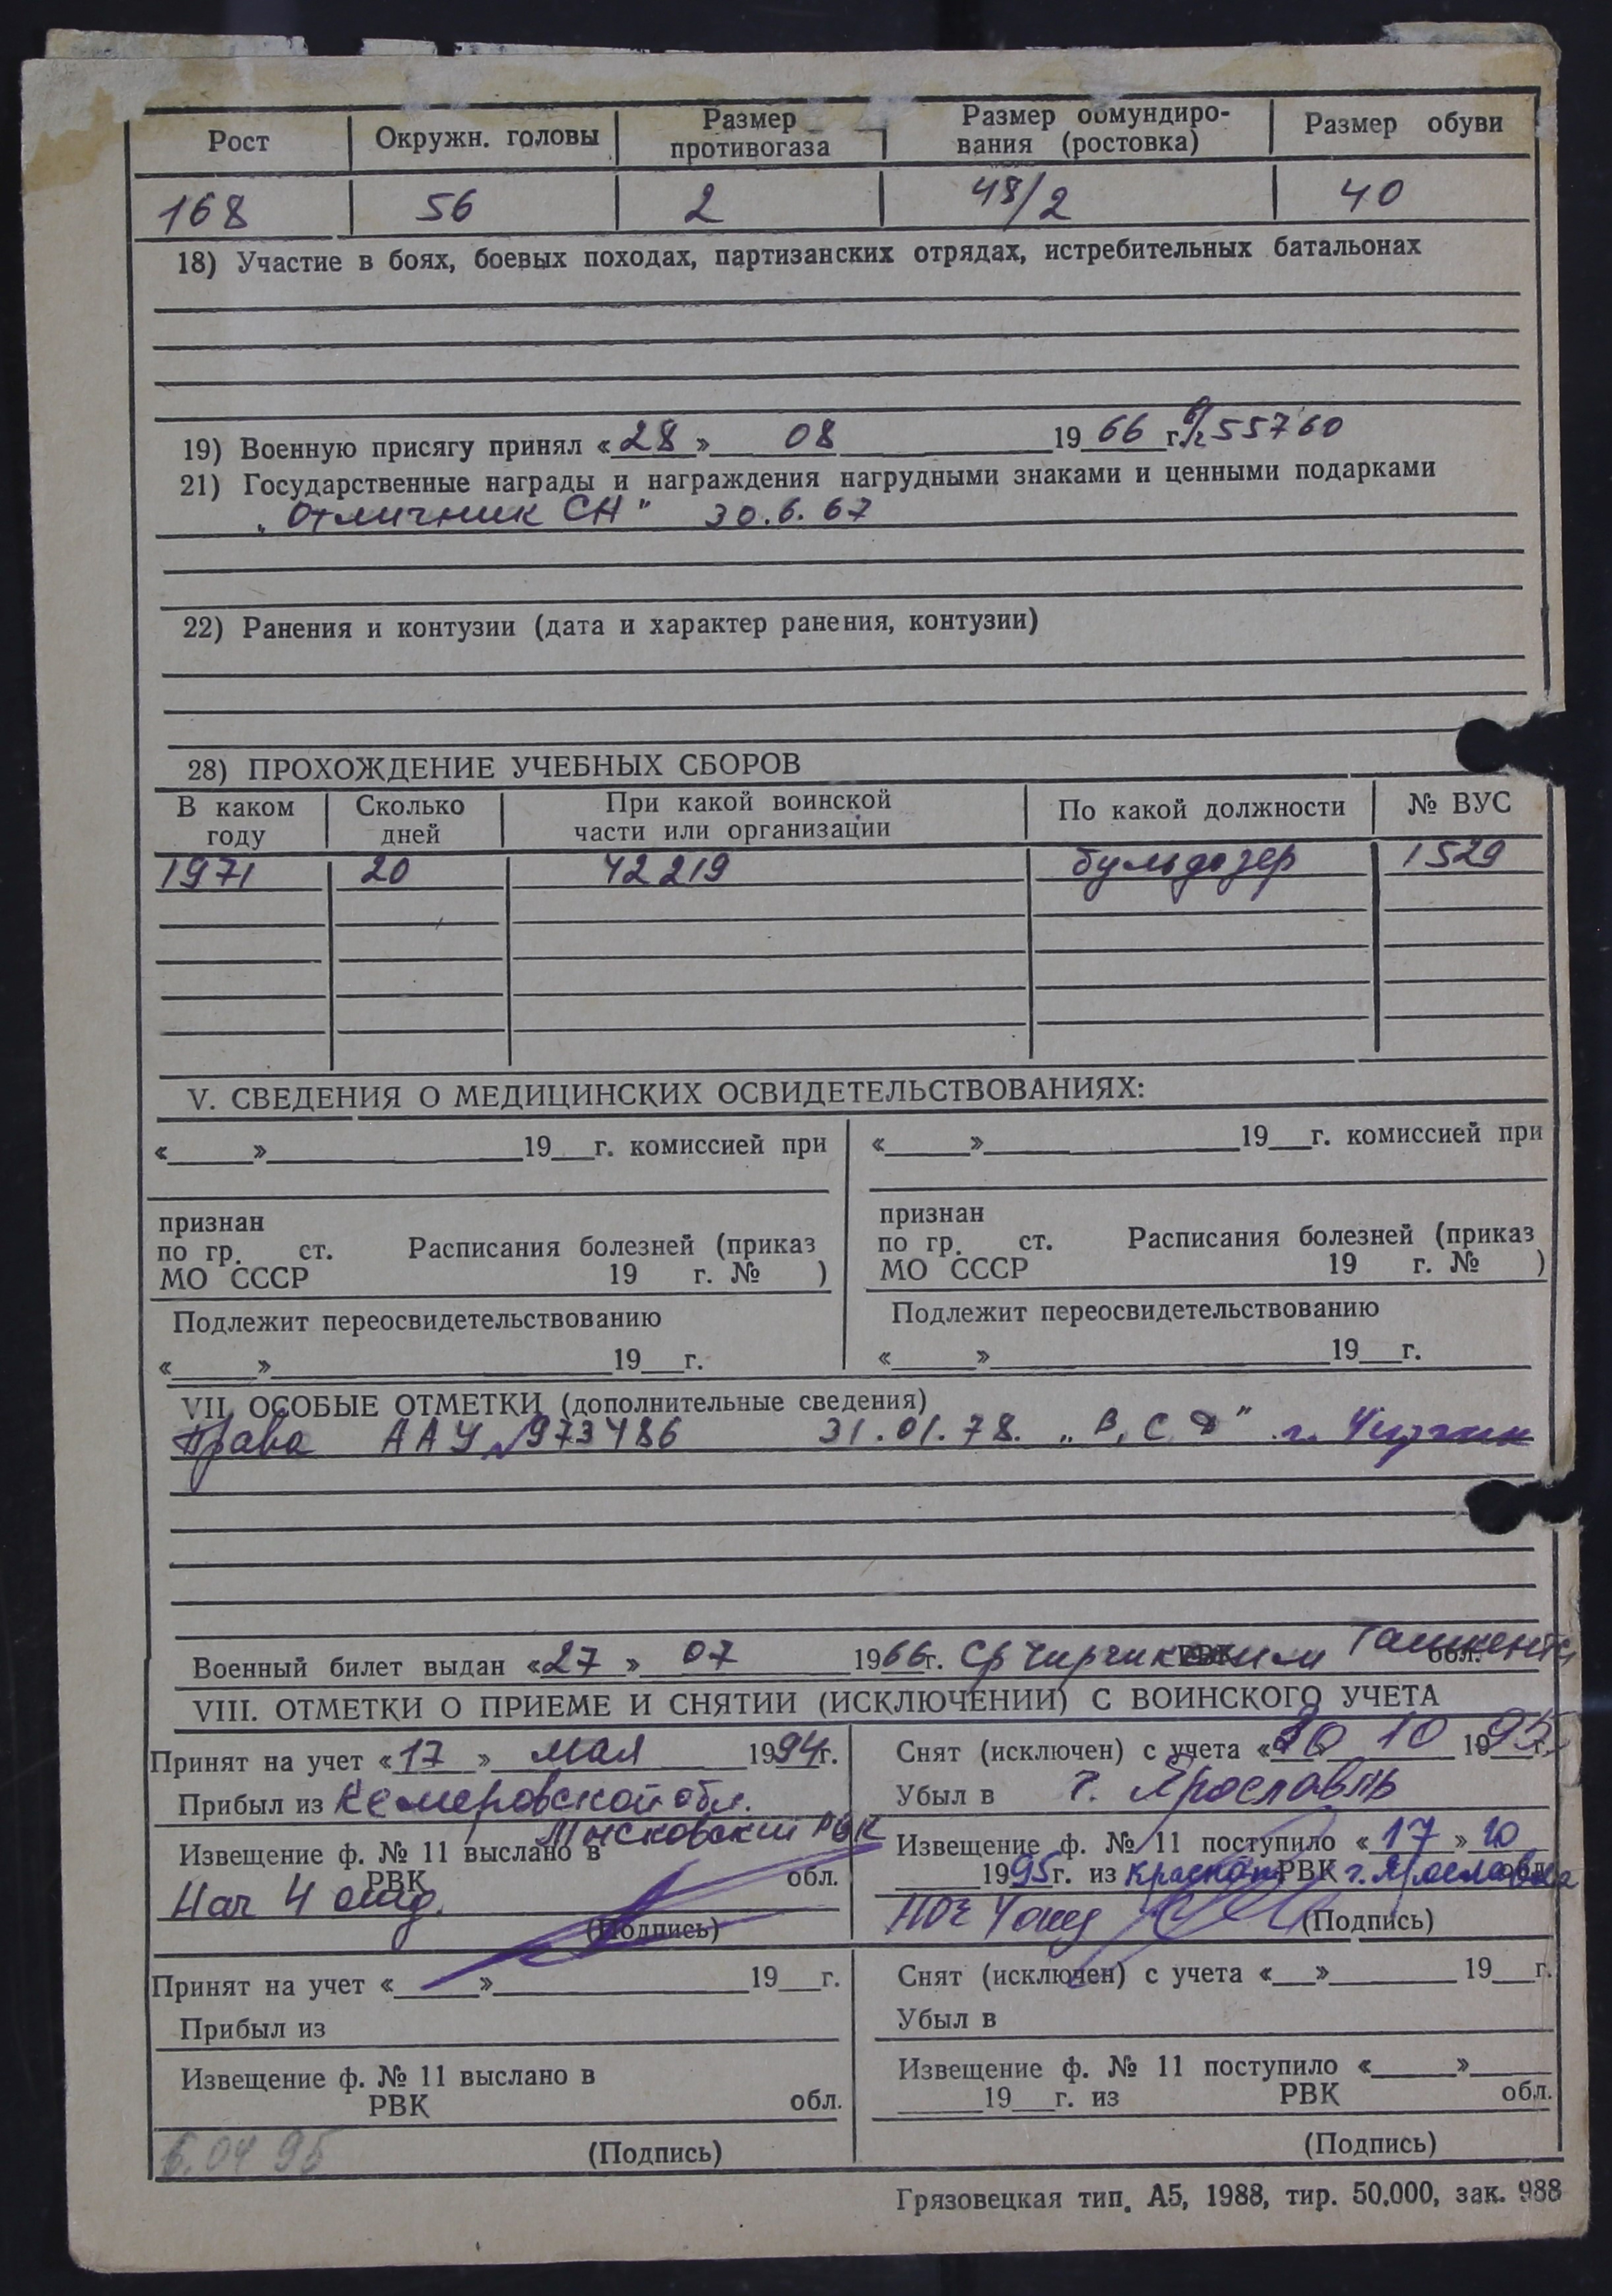 Рост Окружн. головы Размер противогаза Размер обмундиро-вания (ростовка) Размер обуви
168 56 2 48/2 40
18) Участие в боях, боевых походах, партизанских отрядах, истребительных батальонах
19) Военную присягу принял «28» 08 1966 г. в/ч 55760
21) Государственные награды и награждения нагрудными знаками и ценными подарками
„Отличник СА" 30.6.67
22) Ранения и контузии (дата и характер ранения, контузии)
28) ПРОХОЖДЕНИЕ УЧЕБНЫХ СБОРОВ
В каком году Сколько дней При какой воинской части или организации По какой должности № ВУС
1971 20 42219 бульдозер 1529
V. СВЕДЕНИЯ О МЕДИЦИНСКИХ ОСВИДЕТЕЛЬСТВОВАНИЯХ:
«___»___19__г. комиссией при «___»___19__г. комиссией при
признан признан
по гр. ст. Расписания болезней (приказ по гр. ст. Расписания болезней (приказ
МО СССР 19 г. № ) МО СССР 19 г. № )
Подлежит переосвидетельствованию Подлежит переосвидетельствованию
«___»___19__г. «___»___19__г.
VII. ОСОБЫЕ ОТМЕТКИ (дополнительные сведения)
Права ААУ №973486 31.01.78. „В, С" г. Чирчик
Военный билет выдан «27» 07 1966г. Чирчикским РВК Ташкентс обл.
VIII. ОТМЕТКИ О ПРИЕМЕ И СНЯТИИ (ИСКЛЮЧЕНИИ) С ВОИНСКОГО УЧЕТА
Принят на учет «17» мая 1994г.
Прибыл из Кемеровской обл.
Мысковский РВК
Извещение ф. № 11 выслано в
РВК обл.
Нач 4 отд.
(Подпись)
Снят (исключен) с учета «20» 10 1995г.
Убыл в г. Ярославль
Извещение ф. № 11 поступило «17» 10
1995г. из РВК г. Ярославля обл.
(Подпись)
Принят на учет «___»___19__г.
Прибыл из
Извещение ф. № 11 выслано в
РВК обл.
6.04 95
(Подпись)
Снят (исключен) с учета «__»___19__г.
Убыл в
Извещение ф. № 11 поступило «___»___
___19__г. из РВК обл.
(Подпись)
Грязовецкая тип. А5, 1988, тир. 50.000, зак. 988